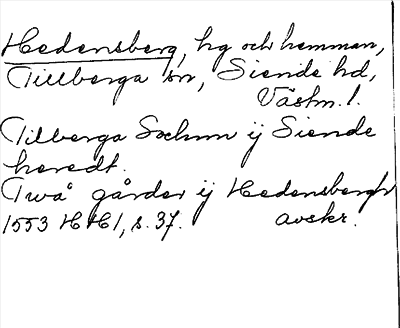 Hedensberg, hg och hemman,
Tillberga sn, Siende hd,
Västm. l.
Tilberga Sochnn ij Siende
heredt.
Twå gårder ij Hedensbergh
1553 HH1, s. 37. avskr.